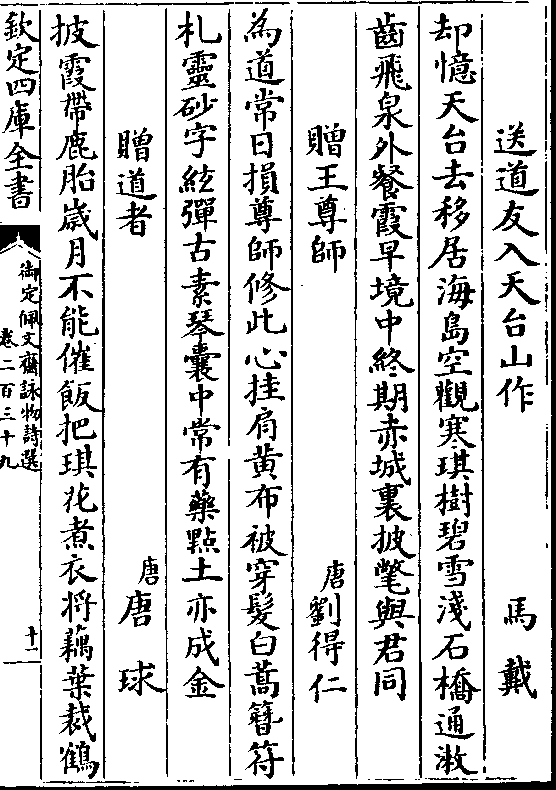 送道友入天台山作 馬戴
却憶天台去移居海島空觀寒琪樹碧雪淺石橋通漱
齒飛泉外餐霞早境中終期赤城裏披氅與君同
贈王尊師 唐劉得仁
為道常日損尊師修此心挂肩黄布被穿髮白蒿簪符
札靈砂字絃彈古素琴囊中常有藥㸃土亦成金
贈道者 唐唐球
披霞帶鹿胎歳月不能催飯把琪花煮衣將藕葉裁鶴
欽定四庫全書
御定佩文齋詠物詩選
卷二百三十九
十一